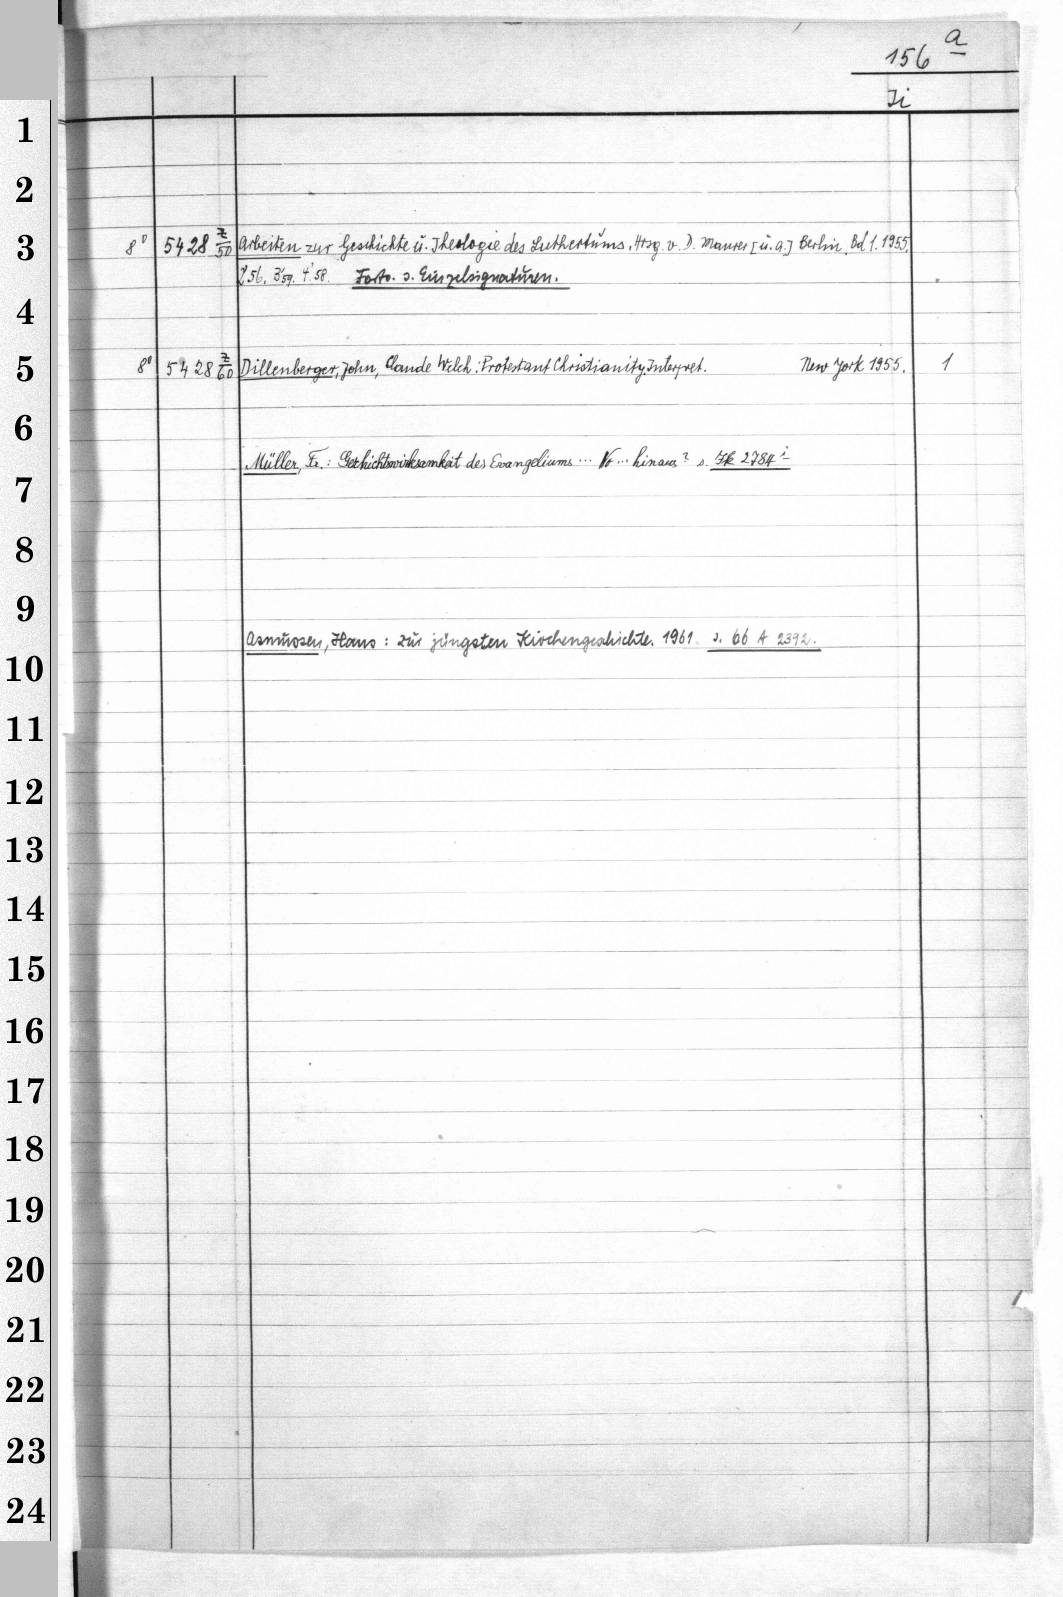 156 a
Ji
1
2
3 8° 5428 z/50 Arbeiten zur Geschichte u. Theologie des Luthertums. Hrsg. v. D. Maurer [u.a.] Berlin. Bd 1. 1955.
2'56. 3'59. 4'58. Forts. s. Einzelsignaturen.
4
5 8° 5428 z/60 Dillenberger, John, Claude Welch: Protestant Christianity, Interpret. New York 1955. 1
6
Müller, Fr.: Geschichtswirksamkeit des Evangeliums ... hinaus? s. 2784 i
7
8
9
Asmussen, Hans: Zur jüngsten Kirchengeschichte. 1961. s. 66 A 2392.
10
11
12
13
14
15
16
17
18
19
20
21
22
23
24